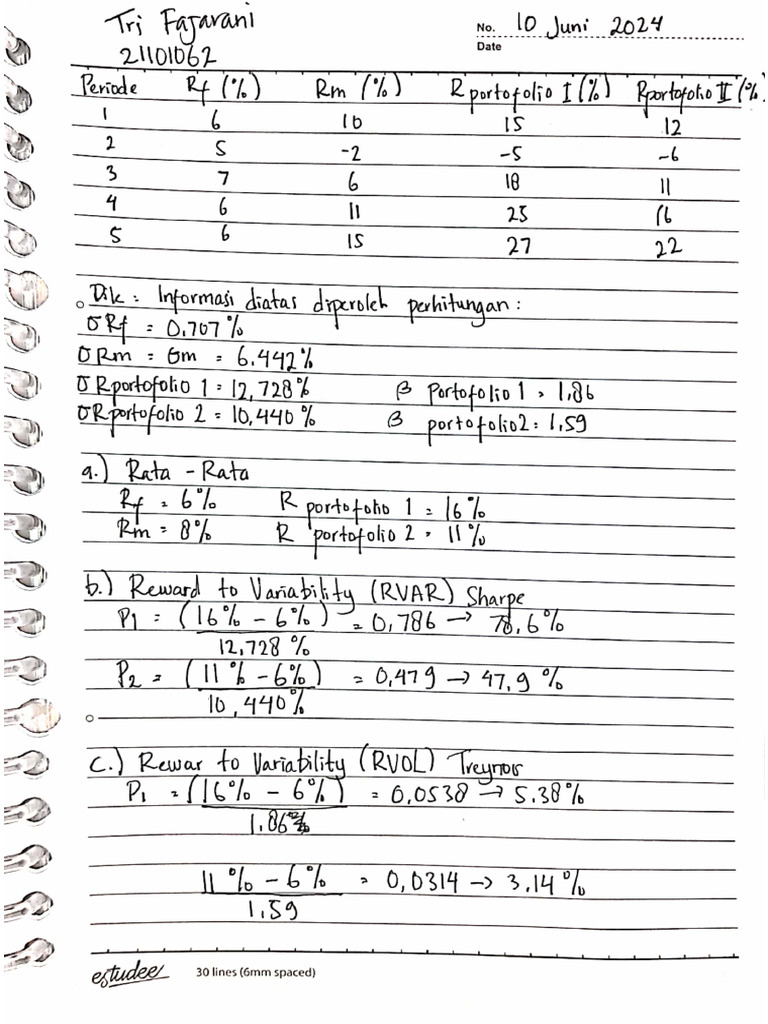 Tri Fajarani
21101062
No. 10 Juni 2024
Date
Periode Rf (%) Rm (%) R portofolio I (%) Rportofolio II (%)
1 6 10 15 12
2 5 -2 -5 -6
3 7 6 18 11
4 6 11 25 16
5 6 15 27 22
Dik : Informasi diatas diperoleh perhitungan :
σ Rf = 0.707 %
σ Rm = σm = 6.442%
σ R portofolio 1 = 12,728 % β Portofolio 1 = 1,86
σ R portofolio 2 = 10,440 % β portofolio2 = 1,59
a.) Rata - Rata
Rf = 6% R portofolio 1 = 16%
Rm = 8% R portofolio 2 = 11%
b.) Reward to Variability (RVAR) Sharpe
P1 = (16% - 6%) = 0,786 → 78,6%
12,728 %
P2 = (11% - 6%) = 0,479 → 47,9 %
10,440%
c.) Rewar to Variability (RVOL) Treynor
P1 = (16% - 6%) = 0,0538 → 5.38%
1.86
11% - 6% = 0,0314 → 3.14%
1.59
estudee 30 lines (6mm spaced)